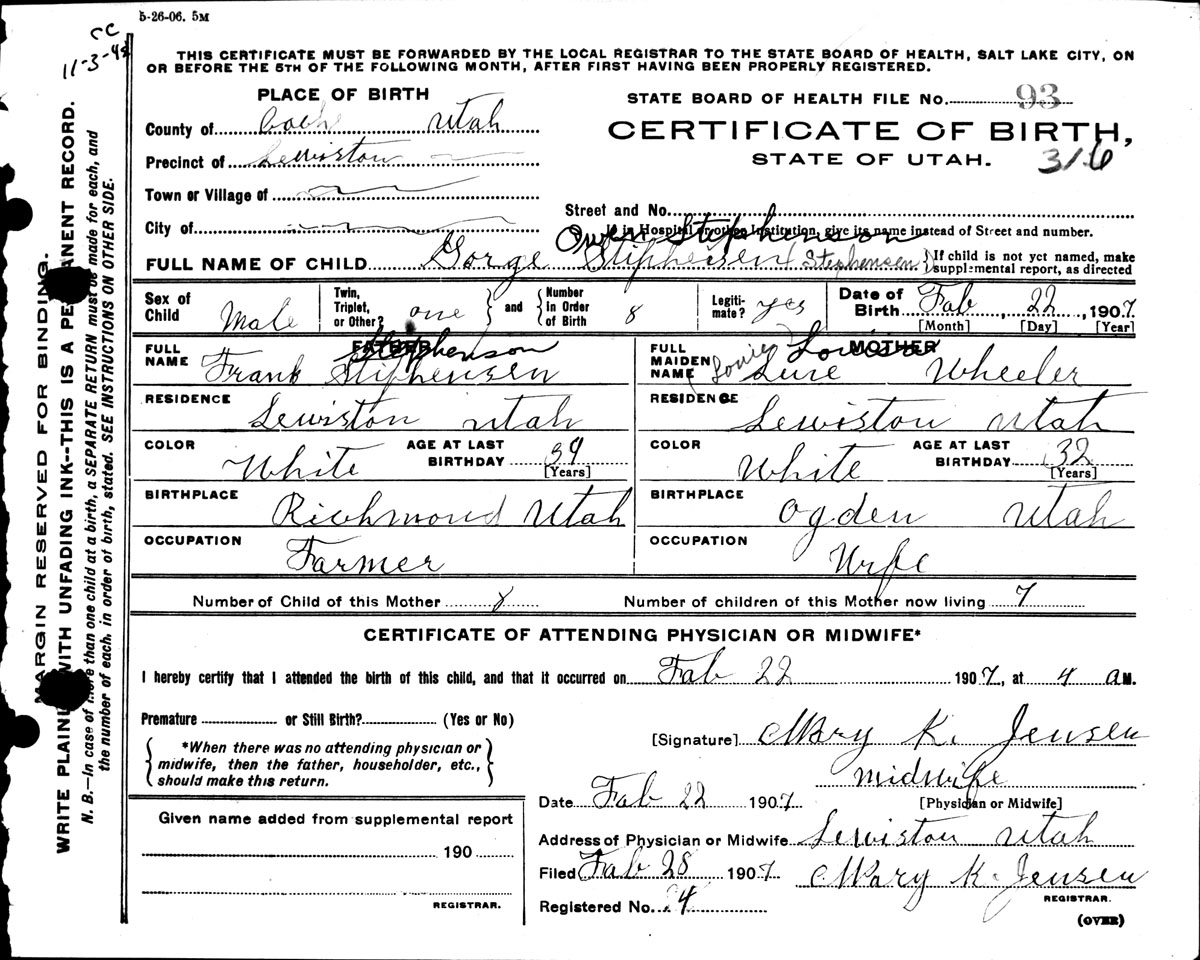 5-26-06. 5M
CC
11-3-42
THIS CERTIFICATE MUST BE FORWARDED BY THE LOCAL REGISTRAR TO THE STATE BOARD OF HEALTH, SALT LAKE CITY, ON
OR BEFORE THE 5TH OF THE FOLLOWING MONTH, AFTER FIRST HAVING BEEN PROPERLY REGISTERED.
MARGIN RESERVED FOR BINDING.
WRITE PLAINLY WITH UNFADING INK--THIS IS A PERMANENT RECORD.
N. B.—In case of more than one child at a birth, a SEPARATE RETURN must be made for each, and
the number of each, in order of birth, stated. SEE INSTRUCTIONS ON OTHER SIDE.
PLACE OF BIRTH
County of Cach Utah
Precinct of Lewiston
Town or Village of
City of
STATE BOARD OF HEALTH FILE No. 93
CERTIFICATE OF BIRTH,
STATE OF UTAH. 316
Street and No.
If in Hospital or other Institution, give its name instead of Street and number.
Owen Stephenson
FULL NAME OF CHILD Gorge Stiphensen (Stephensen) If child is not yet named, make
supplemental report, as directed
Sex of Child Male
Twin, Triplet, or Other? one and Number in Order of Birth 8
Legiti-mate? yes
Date of Birth Fab 22, 1907
[Month] [Day] [Year]
FATHER
Stephenson
FULL NAME Frank Stiphensen
RESIDENCE Lewiston Utah
COLOR White AGE AT LAST BIRTHDAY 39
[Years]
BIRTHPLACE Richmond Utah
OCCUPATION Farmer
MOTHER
Louisa
FULL MAIDEN NAME (Louie) Luie Wheeler
RESIDENCE Lewiston Utah
COLOR White AGE AT LAST BIRTHDAY 32
[Years]
BIRTHPLACE Ogden Utah
OCCUPATION Wife
Number of Child of this Mother 8 Number of children of this Mother now living 7
CERTIFICATE OF ATTENDING PHYSICIAN OR MIDWIFE*
I hereby certify that I attended the birth of this child, and that it occurred on Fab 22 1907, at 4 a M.
Premature or Still Birth? (Yes or No)
*When there was no attending physician or
midwife, then the father, householder, etc.,
should make this return.
[Signature] Mary K. Jensen
midwife
[Physician or Midwife]
Date Fab 22 1907
Address of Physician or Midwife Lewiston Utah
Filed Fab 28 1907 Mary K. Jensen
REGISTRAR.
Registered No. 24
(OVER)
Given name added from supplemental report
190
REGISTRAR.